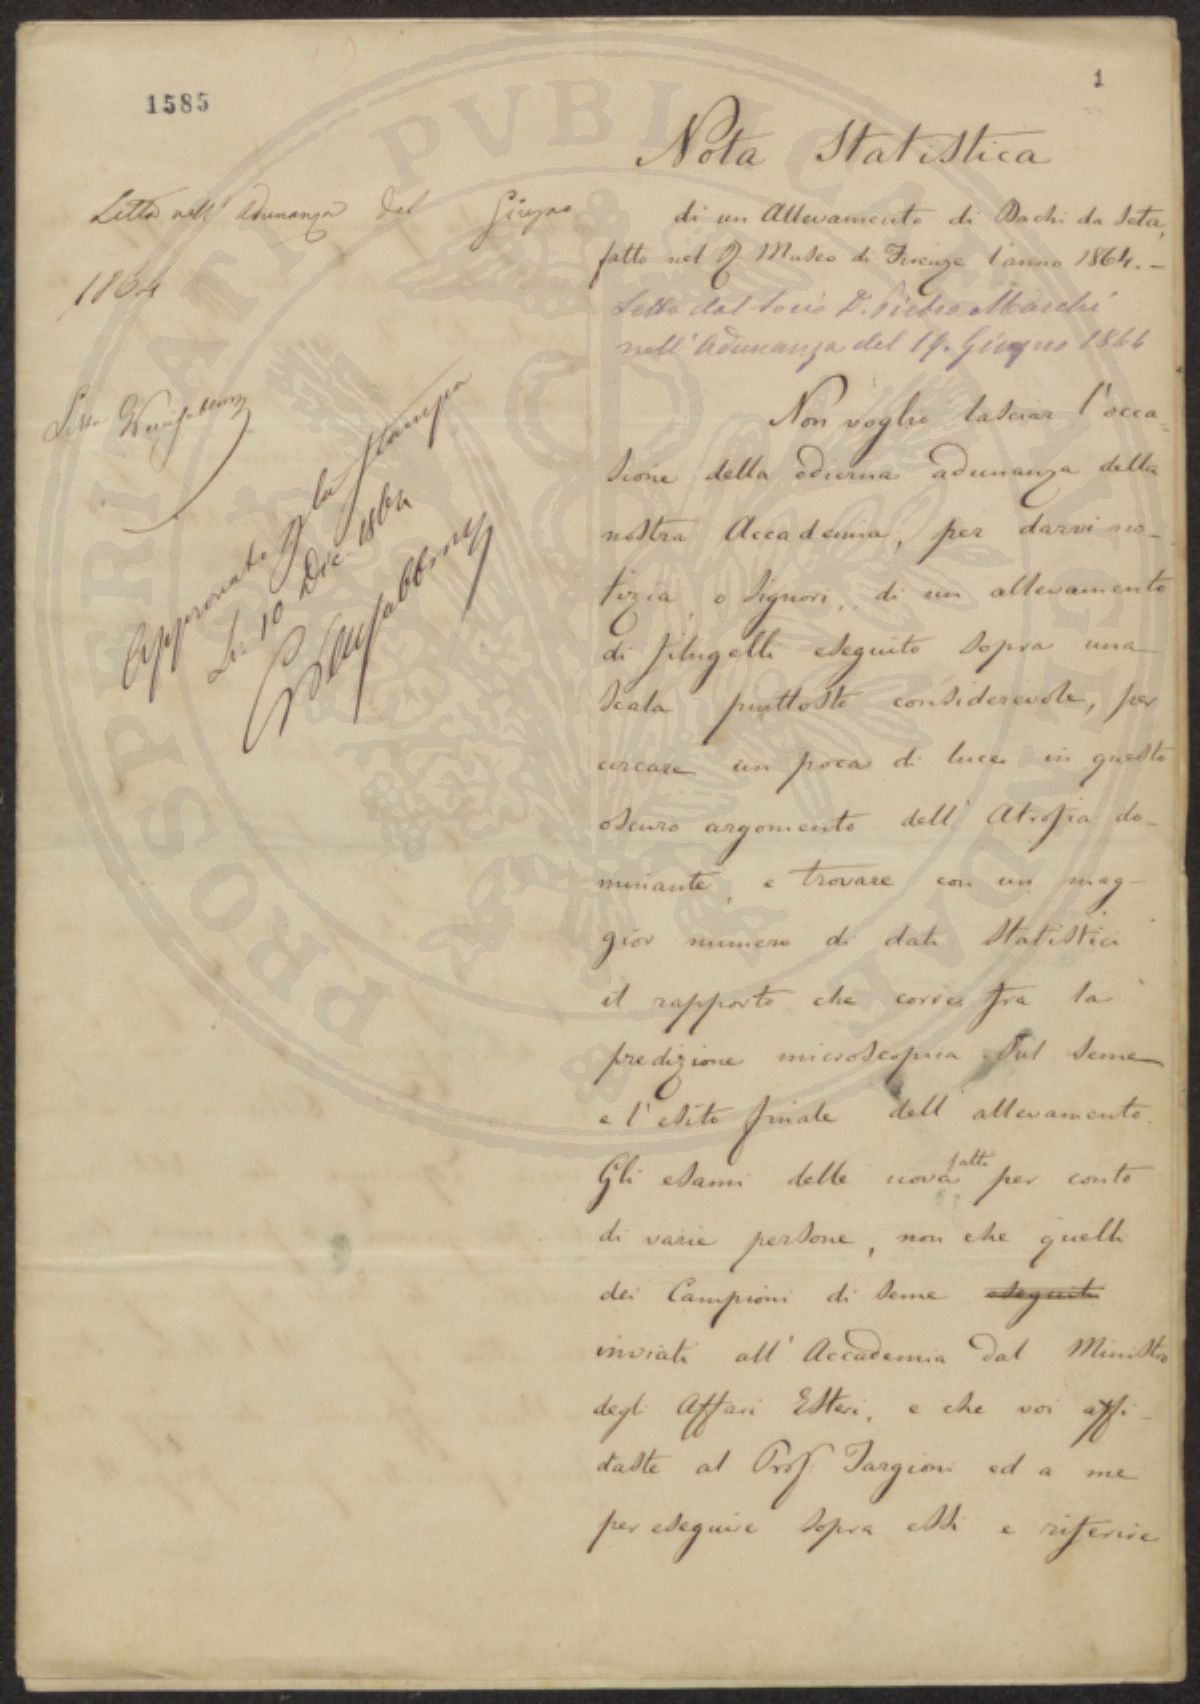 1585
1
Nota Statistica
di un Allevamento di Bachi da Seta,
fatto nel R. Museo di Firenze l'anno 1864. –
Letta dal Socio D. Pietro Marchi
nell'Adunanza del 19. Giugno 1864
Letta nell'Adunanza del Giugno
1864
Letta
Approvata la stampa
Li 10 Dic. 1864
Non voglio lasciar l'occa-
sione della odierna adunanza della
nostra Accademia, per darvi no-
tizia, o Signori, di un allevamento
di filugelli eseguito sopra una
scala piuttosto considerevole, per
cercare un poca di luce in questo
oscuro argomento dell'Atrofia do-
minante, e trovare con un mag-
gior numero di dati statistici
il rapporto che corre fra la
predizione microscopica sul seme
e l'esito finale dell'allevamento.
Gli esami delle uova fatti per conto
di varie persone, non che quelli
dei Campioni di seme eseguiti
inviati all'Accademia dal Ministro
degli Affari Esteri, e che voi affi-
daste al Prof. Targioni ed a me
per eseguire sopra essi e riferire
PROSPERITATI PVBLICAE AVGENDAE